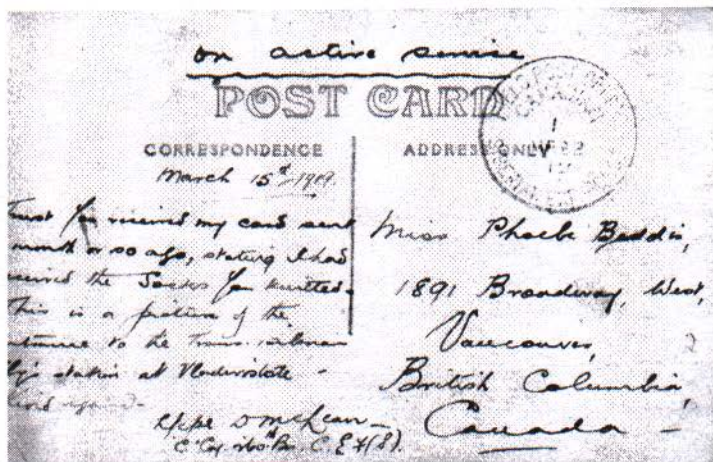 on active service
POST CARD
CORRESPONDENCE
ADDRESS ONLY
March 15th 1919.
Trust you received my card sent
month or so ago, stating I had
received the Socks you knitted.
This is a picture of the
entrance to the trans.
station at
kind regards-
D McLean
"C" Coy. 260th Bn. C.E.F.(S).
Miss Phoebe Beddis,
1891 Broadway, West,
Vancouver,
British Columbia,
Canada -